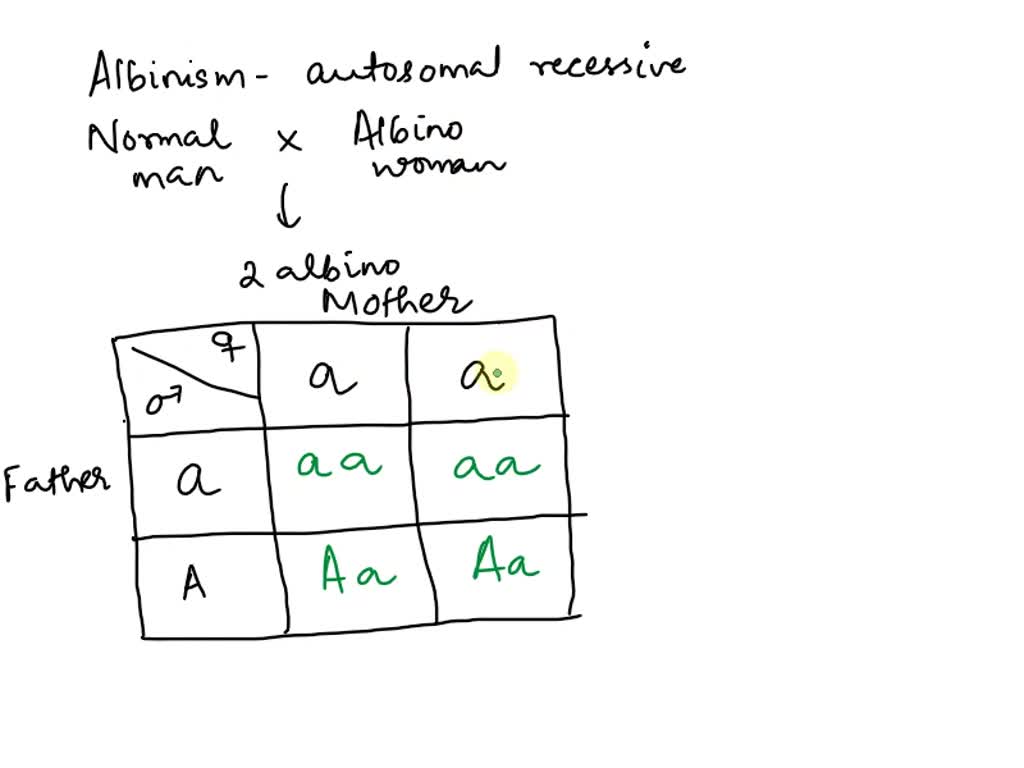 Albinism - autosomal recessive
Normal man x Albino woman
↓
2 albino
Mother
♀ a a
♂
Father a aa aa
A Aa Aa